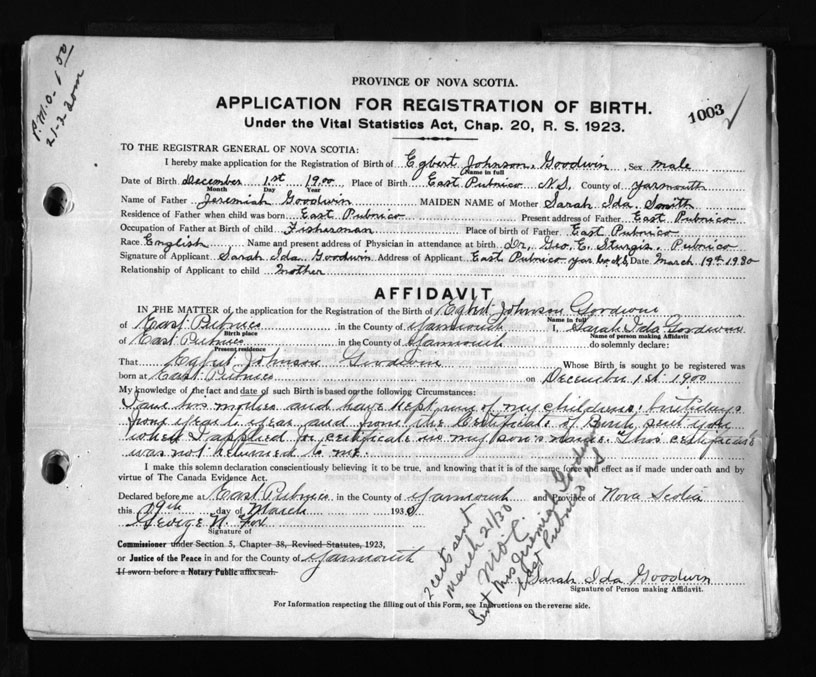 P.M.O. 1.00
21-2-20m
PROVINCE OF NOVA SCOTIA.
APPLICATION FOR REGISTRATION OF BIRTH.
1003 ✓
Under the Vital Statistics Act, Chap. 20, R. S. 1923.
TO THE REGISTRAR GENERAL OF NOVA SCOTIA:
I hereby make application for the Registration of Birth of Egbert Johnson Goodwin, Sex male
Name in full
Date of Birth December 1st 1900 Place of Birth East Pubnico N.S. County of Yarmouth
Month Day Year
Name of Father Jeremiah Goodwin MAIDEN NAME of Mother Sarah Ida Smith
Residence of Father when child was born East Pubnico Present address of Father East Pubnico
Occupation of Father at Birth of child Fisherman Place of birth of Father East Pubnico
Race English Name and present address of Physician in attendance at birth Dr. Geo. E. Sturgis, Pubnico
Signature of Applicant Sarah Ida Goodwin Address of Applicant East Pubnico Yar. Co. N.S. Date March 19th 1930
Relationship of Applicant to child mother
AFFIDAVIT
IN THE MATTER of the application for the Registration of the Birth of Egbert Johnson Goodwin
Name in full
of East Pubnico in the County of Yarmouth I, Sarah Ida Goodwin
Birth place Name of person making Affidavit
of East Pubnico in the County of Yarmouth do solemnly declare:
Present residence
That Egbert Johnson Goodwin Whose Birth is sought to be registered was
born at East Pubnico on December 1st 1900
My knowledge of the fact and date of such Birth is based on the following Circumstances:
I am his mother and have kept run of my childrens birthdays
from year to year and from the Certificate of Birth sent you
when I applied for certificate in my son's name. This certificate
was not returned to me.
I make this solemn declaration conscientiously believing it to be true, and knowing that it is of the same force and effect as if made under oath and by
virtue of The Canada Evidence Act.
Declared before me at East Pubnico in the County of Yarmouth and Province of Nova Scotia
this 19th day of March 1930
George N. Fox
Signature of
Commissioner under Section 5, Chapter 38, Revised Statutes, 1923,
or Justice of the Peace in and for the County of Yarmouth
If sworn before a Notary Public affix seal.
2 certs sent
March 21/30
Sent Mrs Jeremiah Goodwin
East Pubnico NS
Sarah Ida Goodwin
Signature of Person making Affidavit.
For Information respecting the filling out of this Form, see Instructions on the reverse side.